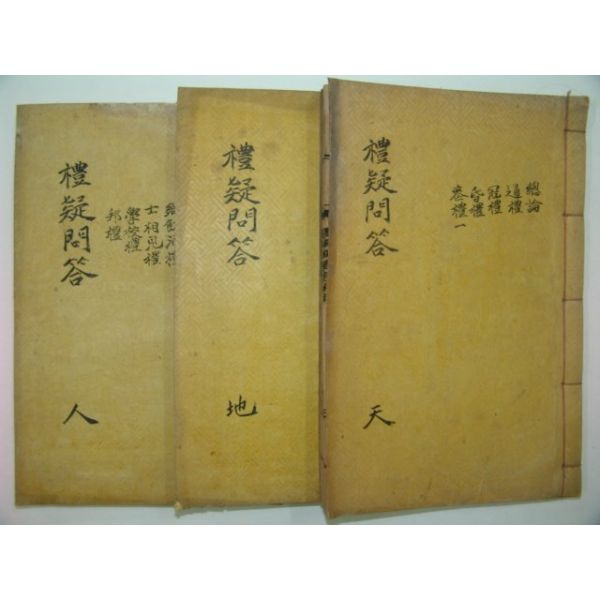 禮疑問答
天
總論
通禮
冠禮
昏禮
喪禮一
禮疑問答
地
禮疑問答
人
士相見禮
學校禮
邦禮